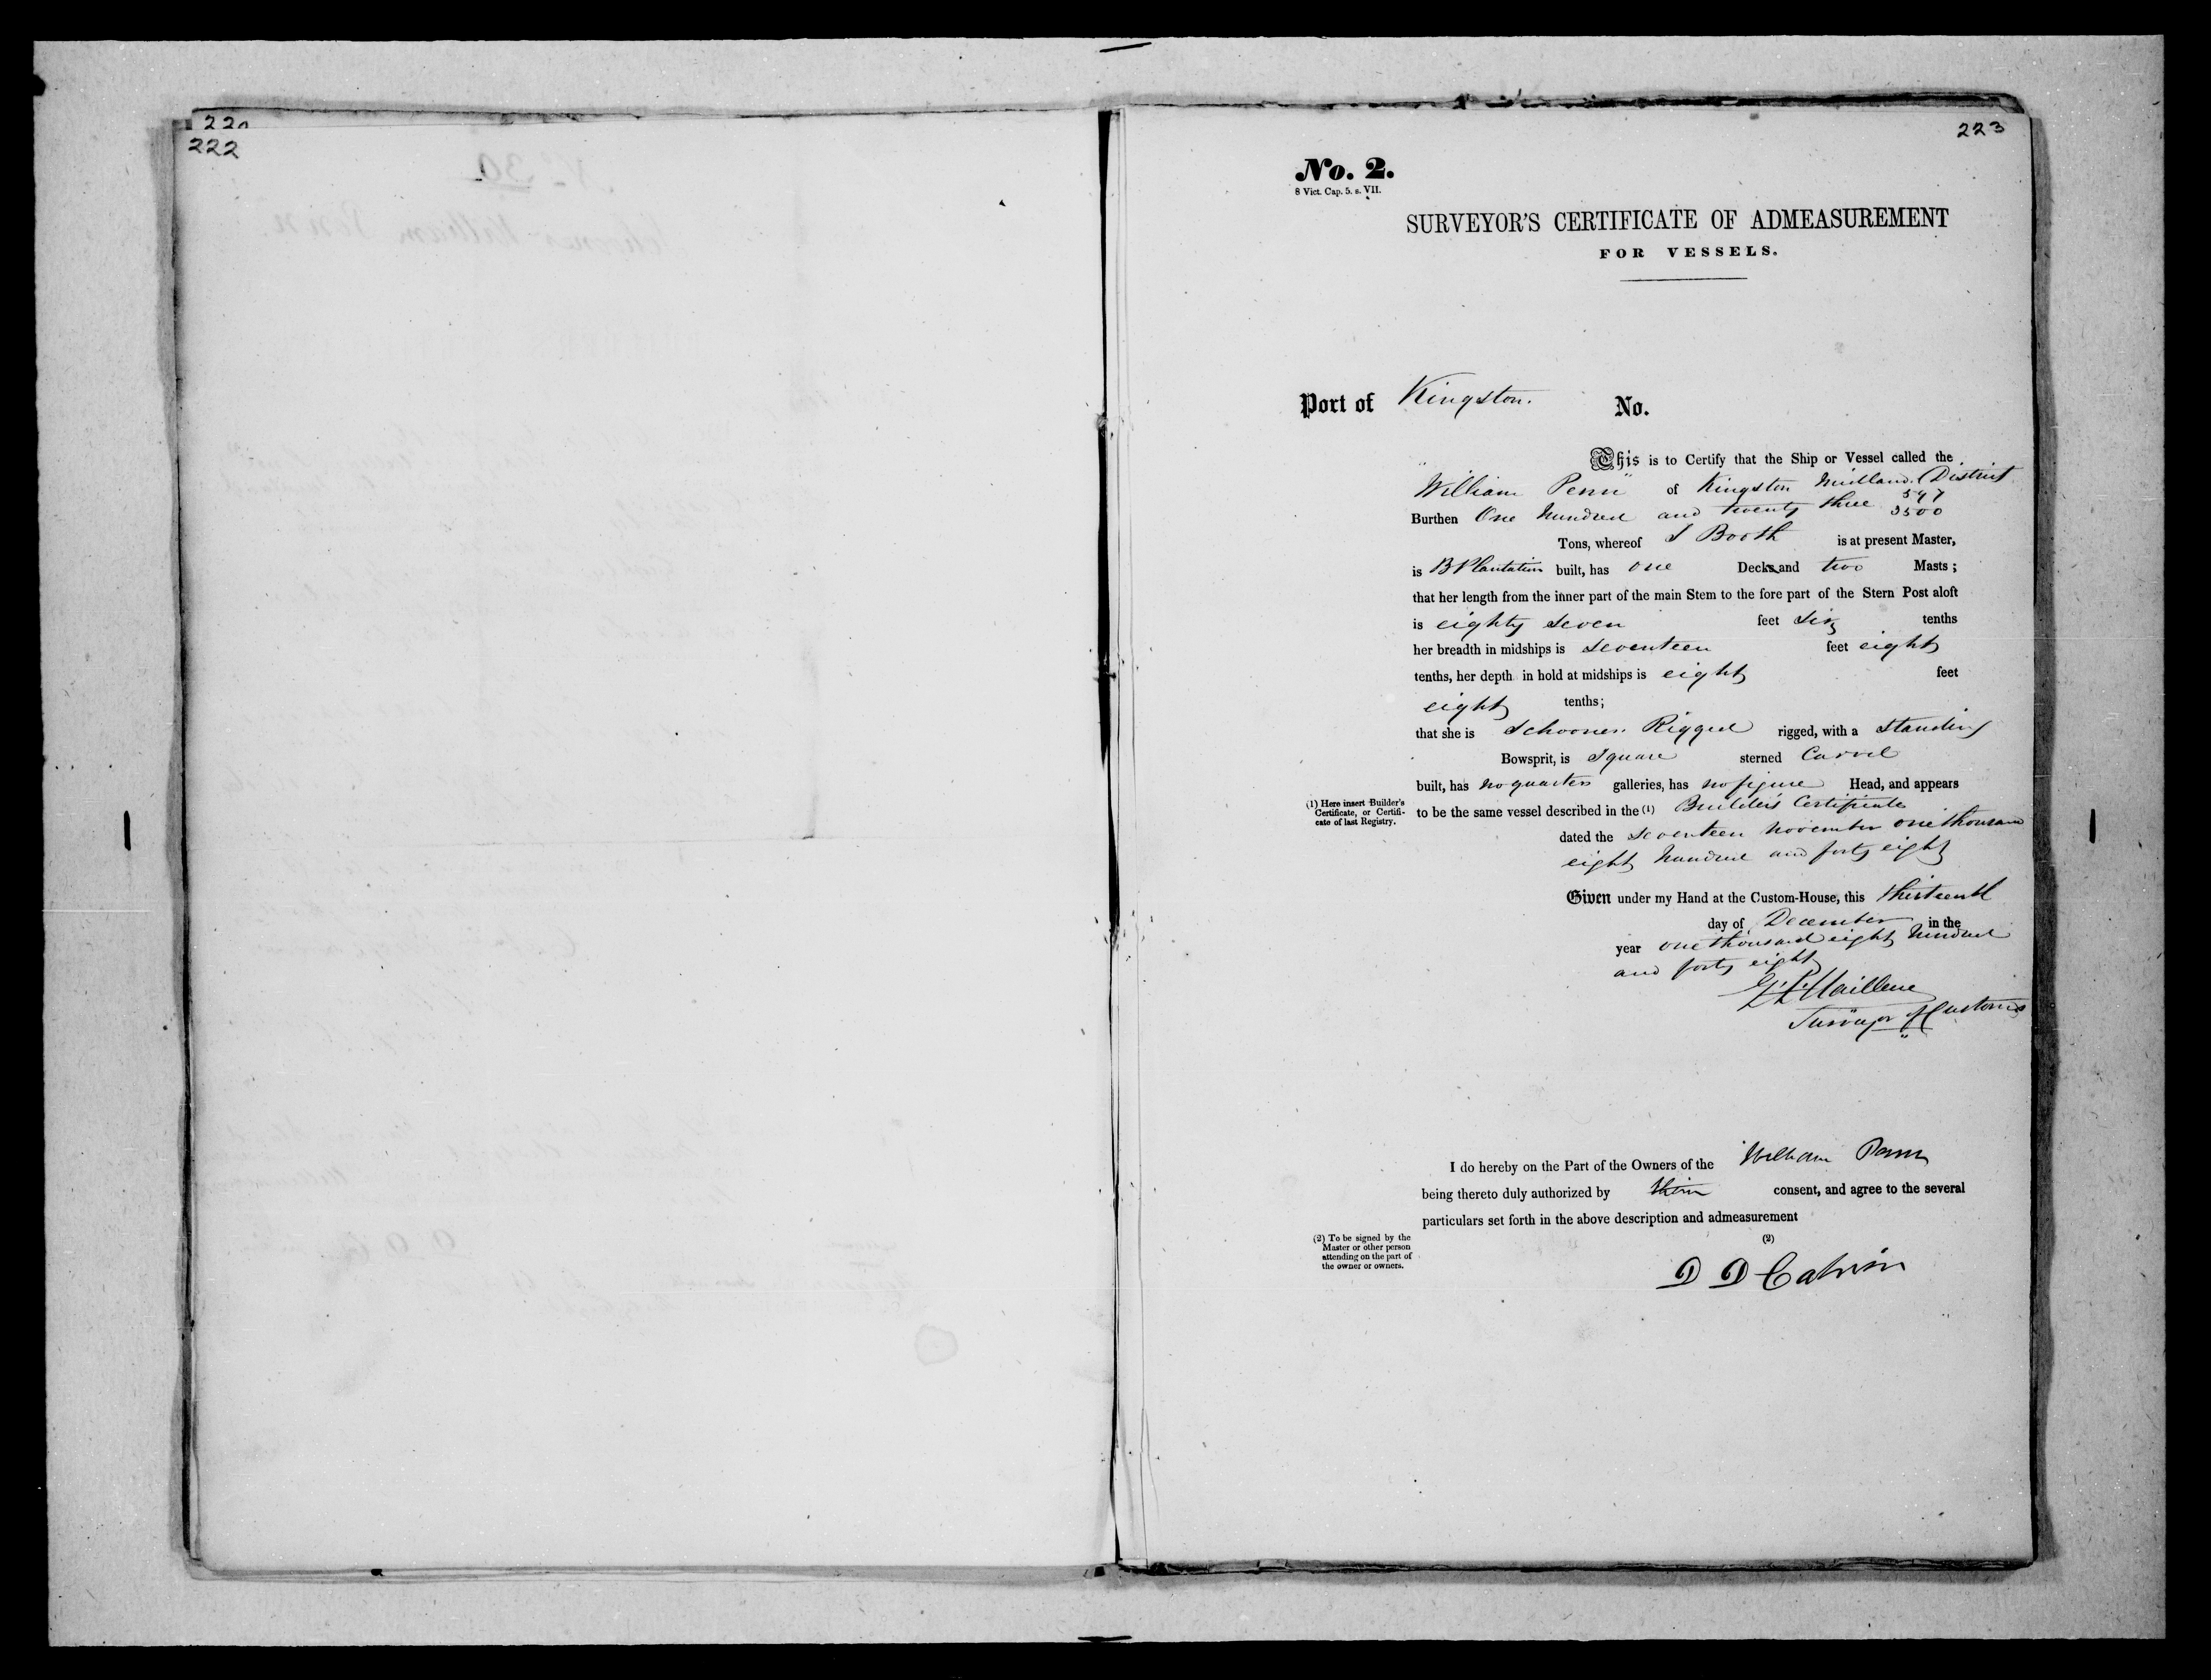 220
222
223
No. 2.
8 Vict. Cap. 5. s. VII.
SURVEYOR'S CERTIFICATE OF ADMEASUREMENT
FOR VESSELS.
Port of Kingston. No.
This is to Certify that the Ship or Vessel called the
"William Penn" of Kingston Midland District
Burthen One hundred and twenty three 597/3500
Tons, whereof S Booth is at present Master,
is B Plantation built, has one Decks and two Masts;
that her length from the inner part of the main Stem to the fore part of the Stern Post aloft
is eighty seven feet Six tenths
her breadth in midships is Seventeen feet eight
tenths, her depth in hold at midships is eight feet
eight tenths;
that she is Schooner Rigged rigged, with a Standing
Bowsprit, is Square sterned Carvel
built, has no quarter galleries, has no figure Head, and appears
(1) Here insert Builder's
Certificate, or Certifi-
cate of last Registry.
to be the same vessel described in the (1) Builder's Certificate
dated the Seventeen November one thousand
eight hundred and forty eight
Given under my Hand at the Custom-House, this thirteenth
day of December in the
year one thousand eight hundred
and forty eight
Surveyor of Customs
I do hereby on the Part of the Owners of the William Penn
being thereto duly authorized by them consent, and agree to the several
particulars set forth in the above description and admeasurement
(2)
(2) To be signed by the
Master or other person
attending on the part of
the owner or owners.
D D Calvin